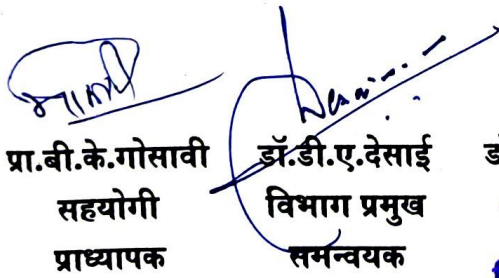 प्रा.बी.के.गोसावी
सहयोगी
प्राध्यापक
डॉ.डी.ए.देसाई
विभाग प्रमुख
समन्वयक